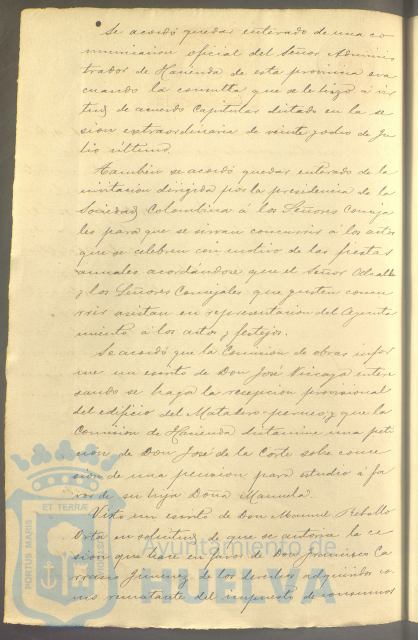 Se acordó quedar enterado de una co-
municacion oficial del Señor Adminis-
trador de Hacienda de esta provincia eva-
cuando la consulta que se le hizo á vir-
tud de acuerdo Capitular dictado en la se-
sion extraordinaria de veinte y ocho de Ju-
lio último.
Tambien se acordó quedar enterado de la
invitacion dirigida por la presidencia de la
Sociedad Colombina á los Señores Conceja-
les para que se sirvan concurrir á los actos
que se celebren con motivo de las fiestas
anuales acordándose que el Señor Alcalde
y los Señores Concejales que gusten concu-
rrir asistan en representacion del Ayunta-
miento á los actos y festejos.
Se acordó que la Comision de obras infor-
me un escrito de Don José Vizcaya intere-
sando se haga la recepcion provisional
del edificio del Matadero y que la
Comision de Hacienda dictamine una peti-
cion de Don José de la Corte sobre conce-
sion de una pension para estudio á fa-
vor de su hija Doña Manuela.
Visto un escrito de Don Manuel Rebollo
Orta en solicitud de que se autorice la ce-
sion que hace á favor de Don Francisco Ca-
rrasco Jimenez de los derechos adquiridos co-
mo rematante del impuesto de consumos
PORTUS MARIS ET TERRÆ
Ayuntamiento de
HUELVA